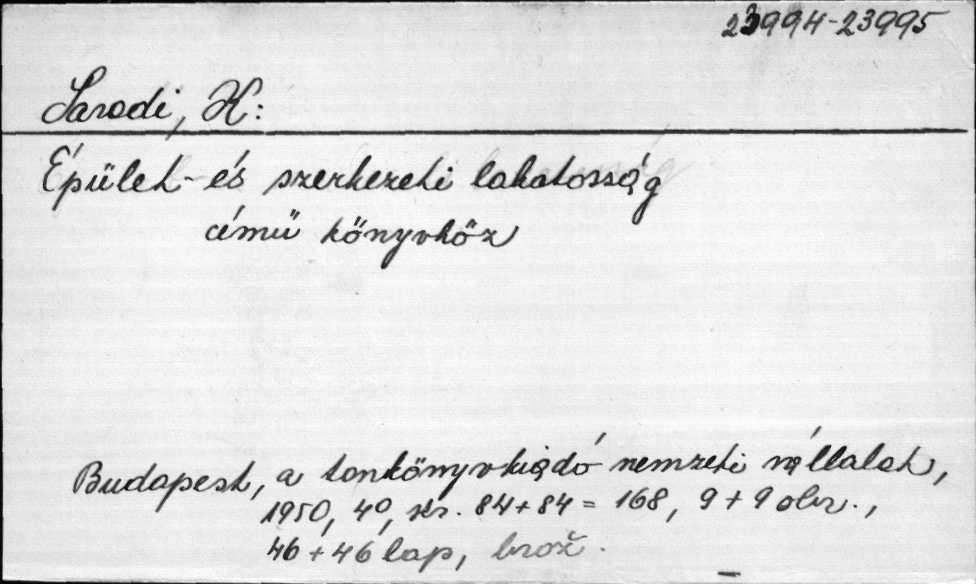 23994-23995
Sarodi, K:
Épület- és szerkezeti lakatosság
című könyvhöz
Budapest, a tonkönyvkiadó nemzeti vállalat,
1950, 4°, str. 84+84 = 168, 9+9 obr.,
46+46 lap, brož.